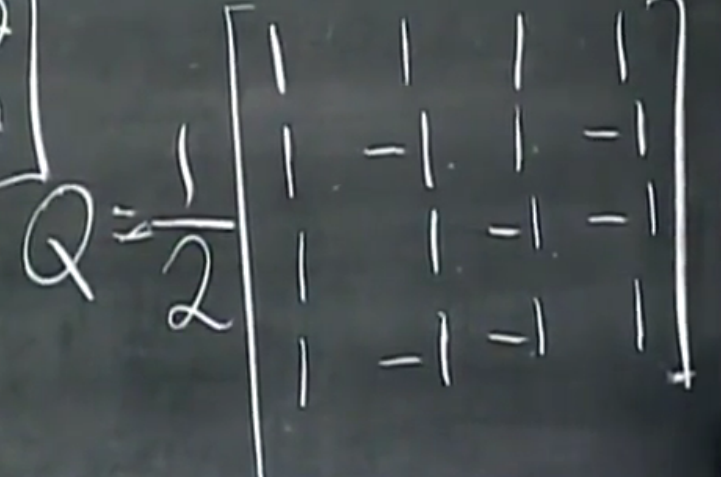 Q = 1/2 [ 1 1 1 1
1 -1 1 -1
1 1 -1 -1
1 -1 -1 1 ]